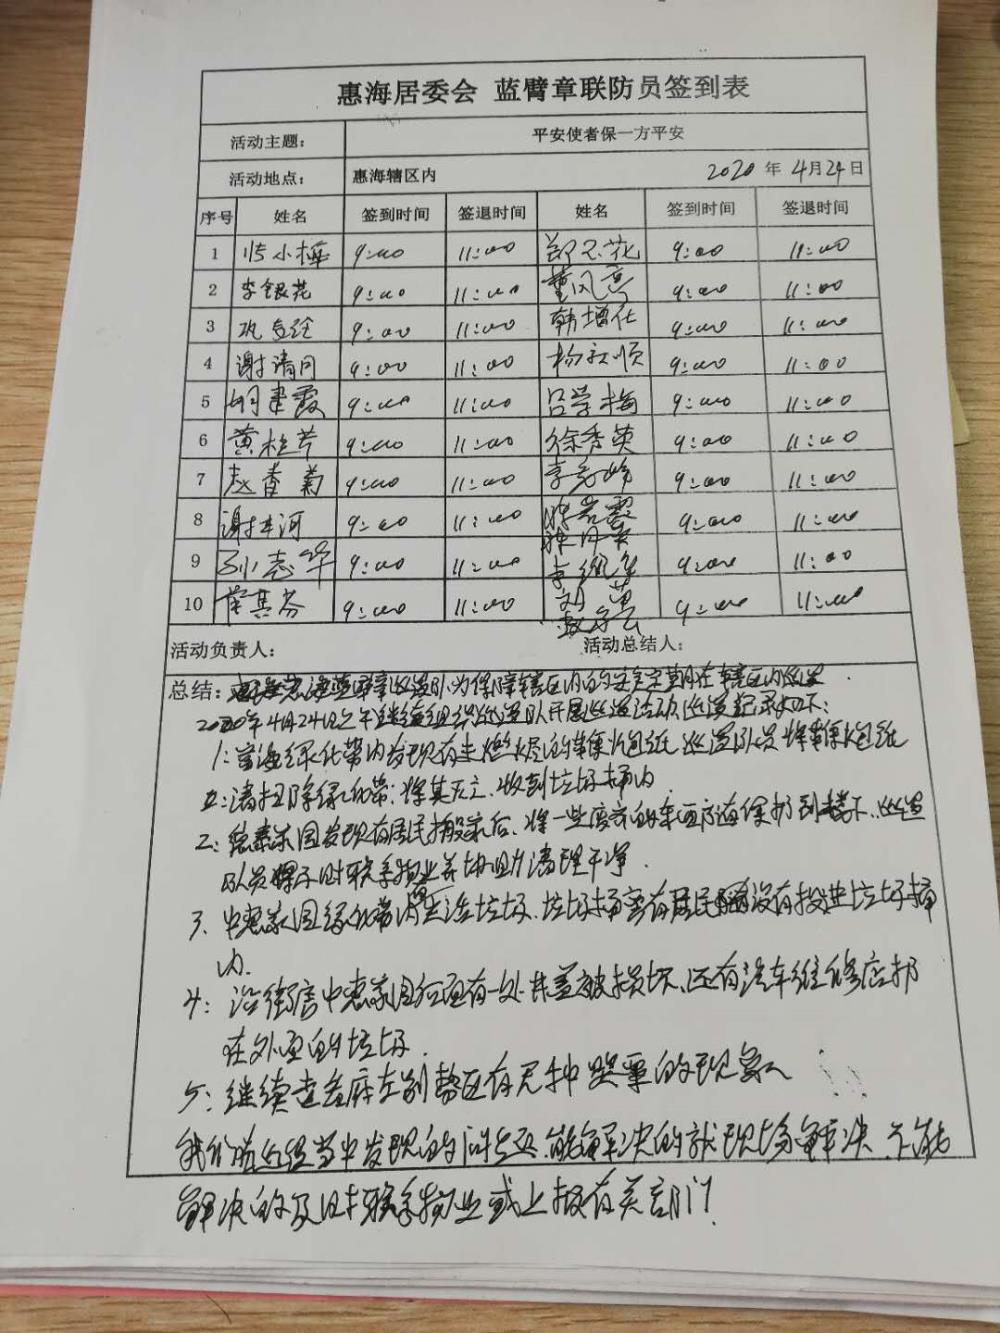 惠海居委会 蓝臂章联防员签到表
活动主题： 平安使者保一方平安
活动地点： 惠海辖区内 2020 年 4月24日
序号 姓名 签到时间 签退时间 姓名 签到时间 签退时间
1 小梅 9:00 11:00 花 9:00 11:00
2 李银花 9:00 11:00 董凤亭 9:00 11:00
3 9:00 11:00 韩增化 9:00 11:00
4 谢清月 9:00 11:00 杨顺 9:00 11:00
5 胡建霞 9:00 11:00 吕学梅 9:00 11:00
6 黄桂芹 9:00 11:00 徐秀英 9:00 11:00
7 赵香菊 9:00 11:00 李 9:00 11:00
8 谢河 9:00 11:00 陈岩霞 9:00 11:00
陈
9 孙志华 9:00 11:00 9:00 11:00
10 其芬 9:00 11:00 刘苗 9:00 11:00
活动负责人： 活动总结人：
总结： 惠海蓝臂章巡逻队为保障辖区内的安全定期在辖区内巡逻
2020年4月24日上午继续组织巡逻队开展巡逻活动，巡逻记录如下：
1：绿化带内发现有未燃尽的包纸，巡逻队员将包纸
清扫除绿化带，将其灭之，收到垃圾桶内
2：东园发现有居民搬家后，将一些废弃的东西随便扔到楼下，巡逻
队员及时联系物业并协助清理干净．
3、中惠家园绿化带内有垃圾，垃圾桶旁有居民没有投进垃圾桶
内．
4：沿街店中惠家园征面有一处井盖被损坏、还有汽车维修店扔
在外面的垃圾．
5：继续查看麻左别墅区有无种罂粟的现象
我们巡逻当中发现的问题，能解决的就现场解决，不能
解决的及时联系物业或上报有关部门．